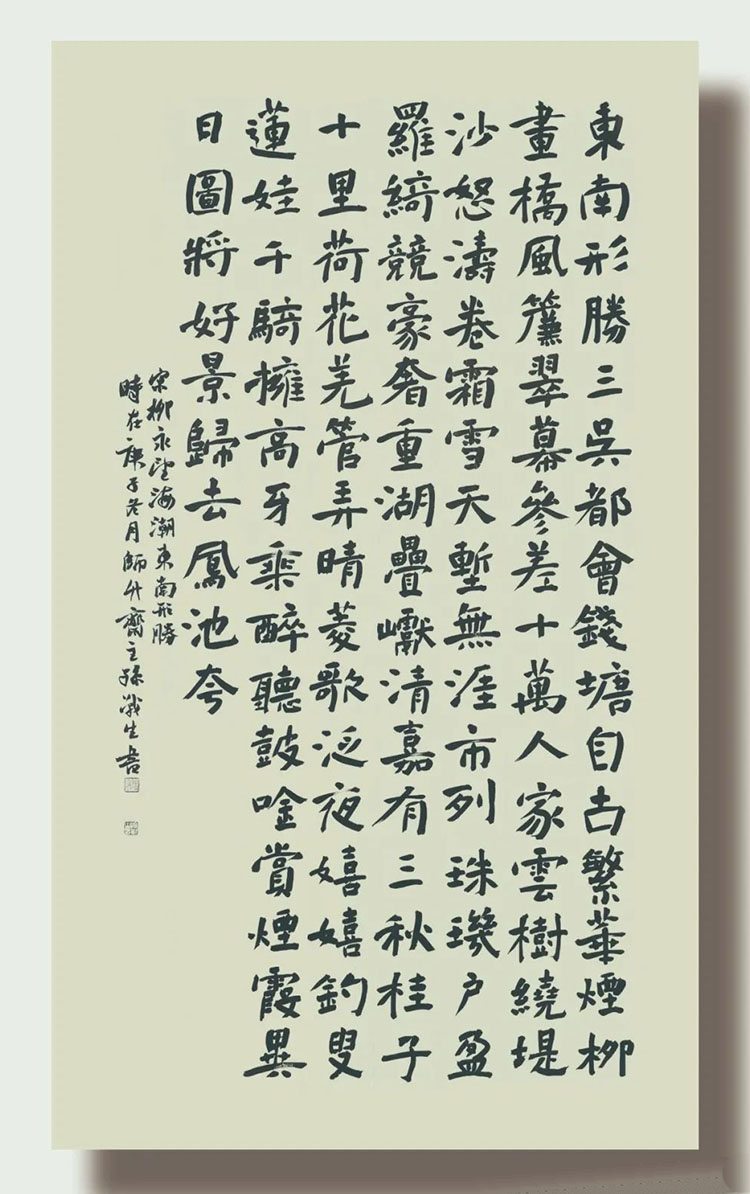 東南形勝三吳都會錢塘自古繁華煙柳
畫橋風簾翠幕參差十萬人家雲樹繞堤
沙怒濤卷霜雪天塹無涯市列珠璣户盈
羅綺競豪奢重湖疊巘清嘉有三秋桂子
十里荷花羌管弄晴菱歌泛夜嬉嬉釣叟
蓮娃千騎擁高牙乘醉聽鼓唫賞煙霞異
日圖將好景歸去鳳池夸
宋柳永望海潮東南形勝
時在庚子冬月師竹齋主孫生書